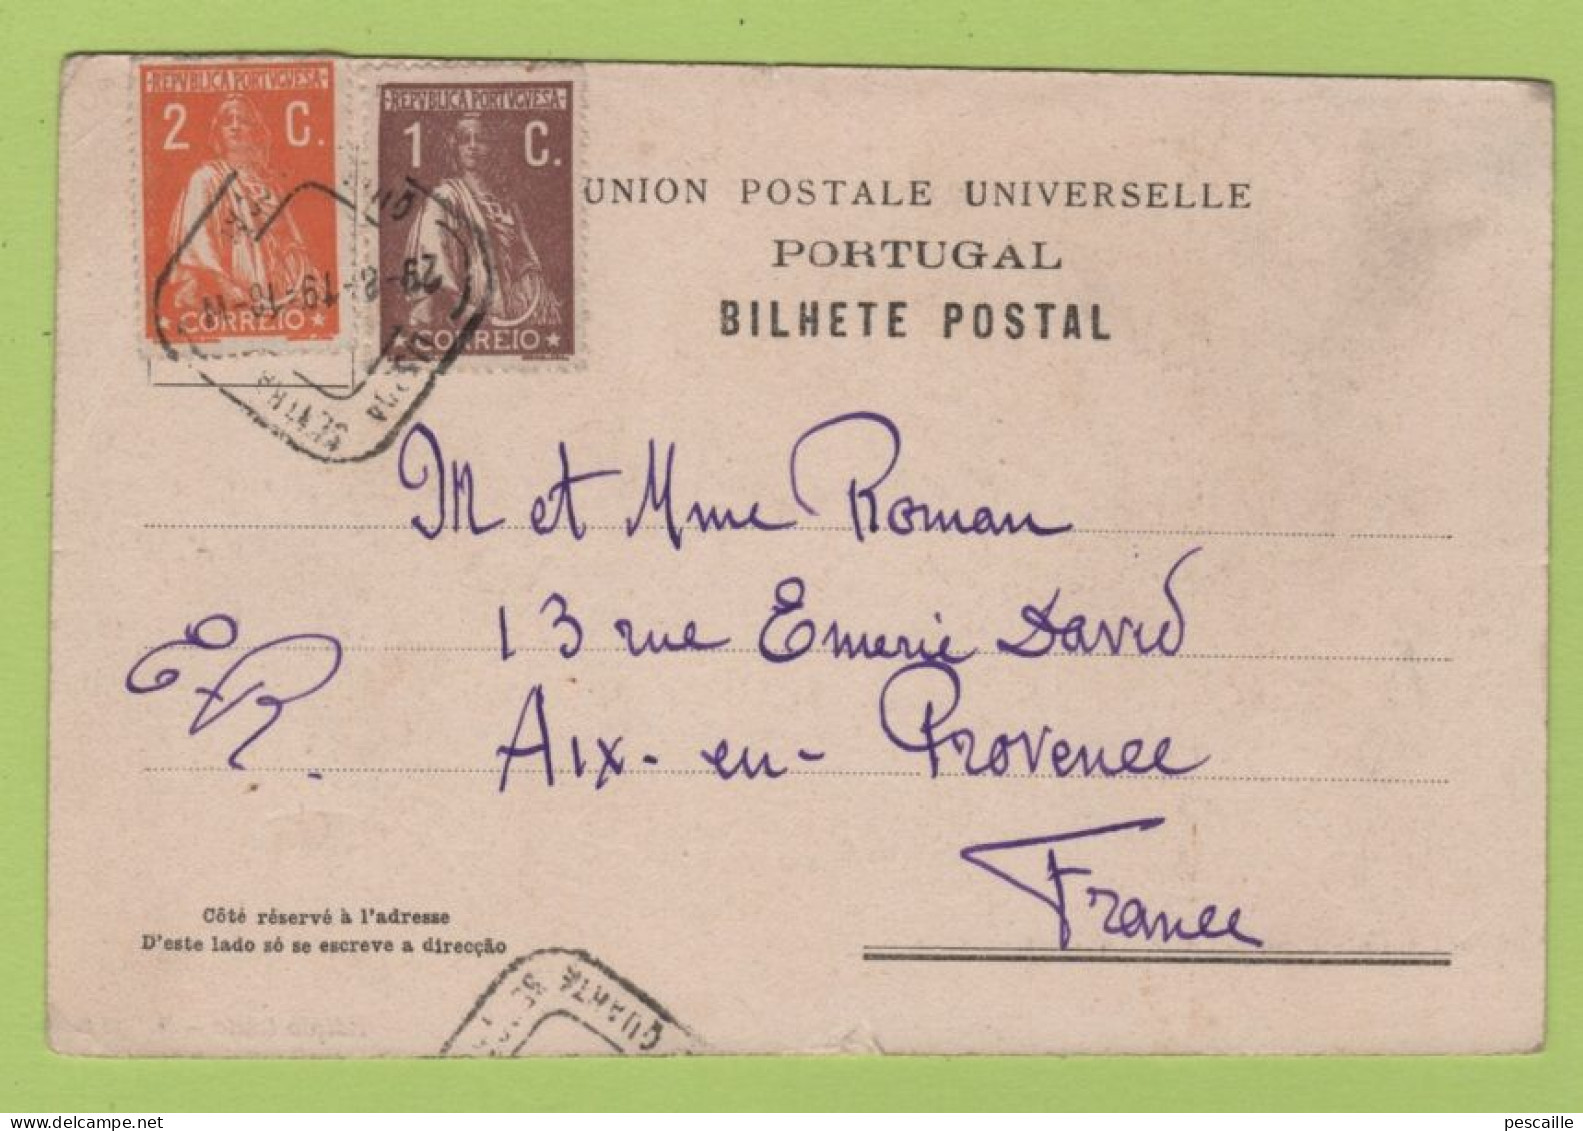 REPVBLICA PORTVGVESA
2 C.
CORREIO
REPVBLICA PORTVGVESA
1 C.
CORREIO
UNION POSTALE UNIVERSELLE
PORTUGAL
BILHETE POSTAL
M et Mme Roman
13 rue Emeric David
ER.
Aix-en-Provence
France
Côté réservé à l'adresse
D'este lado só se escreve a direcção
QUARTA
pescaille